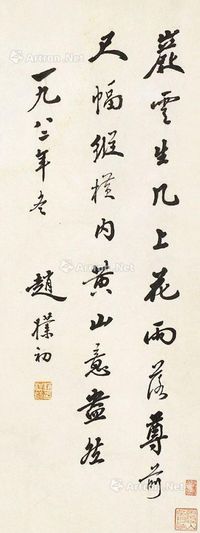 巖雲生几上花雨落尊前
尺幅縱橫內黃山意盎然
一九八二年冬
趙樸初